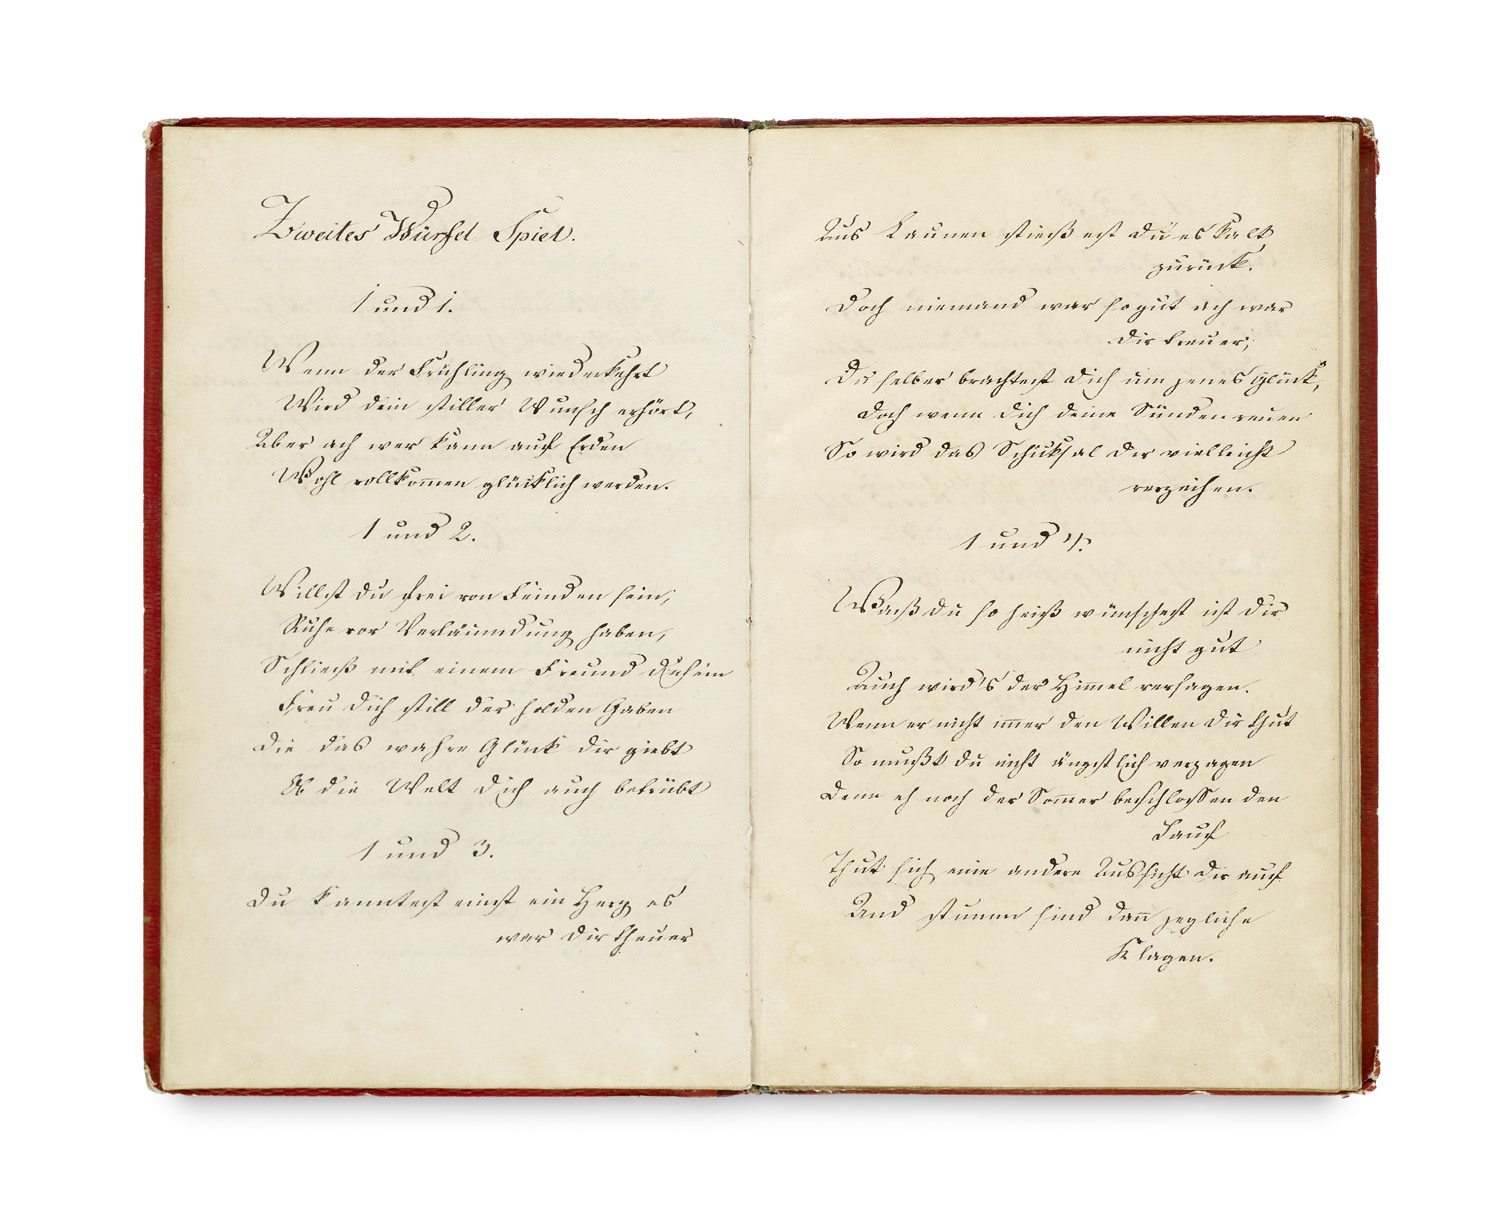 Zweites Würfel Spiel.
1 und 1.
Wenn der Frühling wiederkehrt
Wird dein stiller Wunsch erhört,
Aber ach wer kann auf Erden
Wohl vollkom̅en glücklich werden.
1 und 2.
Willst du frei von Feinden sein,
Ruhe vor Verläumdung haben,
Schließ mit einem Freund dich ein
Freu dich still der holden Gaben
Die das wahre Glück dir giebt
Ob die Welt dich auch betrübt
1 und 3.
Du kanntest einst ein Herz es
war dir theuer
Aus Launen stießest du es kalt
zurück.
Doch niemand war so gut ach war
dir treuer,
Du selber brachtest dich um jenes Glück,
Doch wenn dich deine Sünden reuen
So wird das Schicksal dir vielleicht
verzeihen.
1 und 4.
Waß du so heiß wünschest ist dir
nicht gut
Auch wird's der Him̅el versagen.
Wenn er nicht im̅er den Willen dir thut
So mußt du nicht ängstlich verzagen
Denn eh noch der Som̅er beschlossen den
Lauf
Thut sich eine andere Aussicht dir auf
Und stumm sind dan̅ jegliche
Klagen.